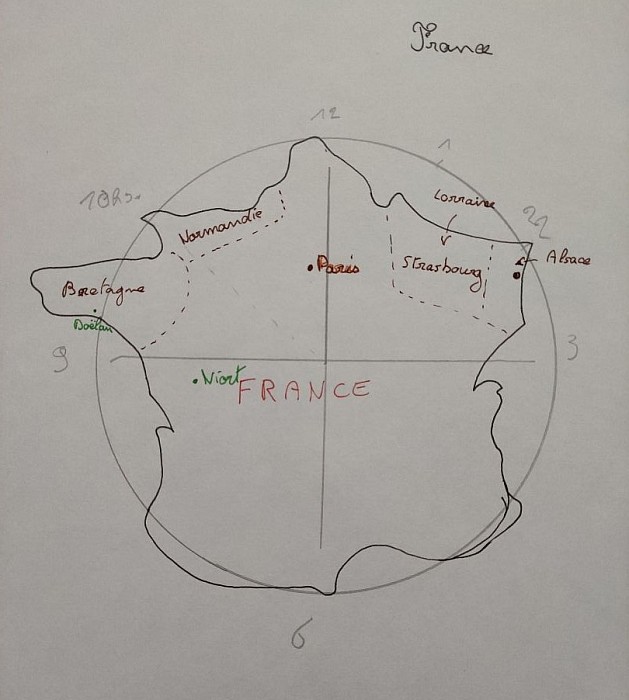 France
12
1
10h
Lorraine
22
Normandie
Alsace
Paris
Strasbourg
Bretagne
Doëlan
9
3
Niort
FRANCE
6